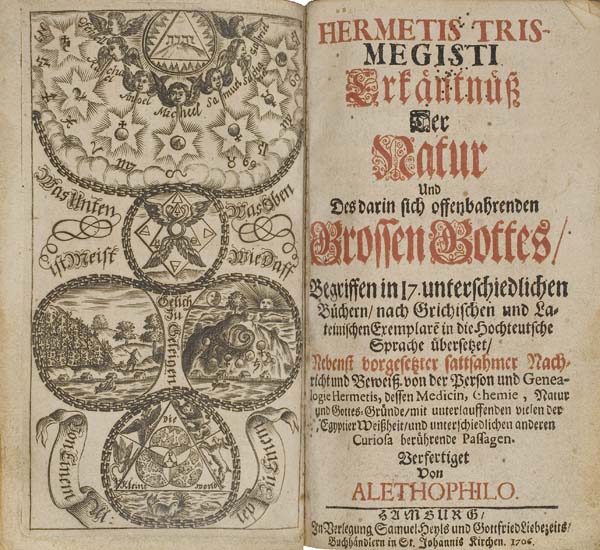 Gabriel
Michael
Samuel
Was Unten
Was Oben
ist Meist
Wie Daß
die
Kleine
welt
Von Einem
HERMETIS TRIS-
MEGISTI
Erkäntnüß
Der
Natur
Und
Des darin sich offenbahrenden
Grossen Gottes/
Begriffen in 17. unterschiedlichen
Büchern/ nach Grichischen und La-
teinischen Exemplarē in die Hochteutsche
Sprache übersetzet/
Nebenst vorgesetzter sattsahmer Nach-
richt und Beweiß von der Person und Genea-
logie Hermetis, dessen Medicin, Chemie, Natur
und Gottes-Gründe/ mit unterlauffenden vielen der
Egyptier Weißheit/ und unterschiedlichen anderen
Curiosa berührende Passagen.
Verfertiget
Von
ALETHOPHILO.
HAMBURG/
In Verlegung Samuel Heyls und Gottfried Liebezeits/
Buchhändlern in St. Johannis Kirchen. 1706.